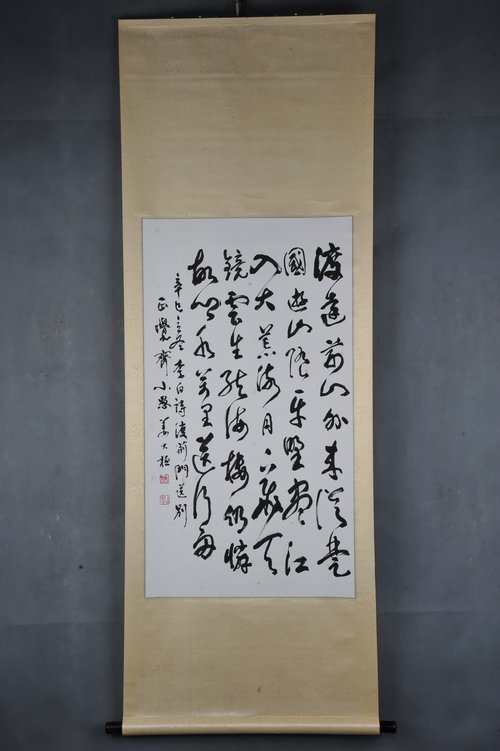 渡遠荊門外來從楚
國遊山隨平野盡江
入大荒流月下飛天
鏡雲生結海樓仍憐
故鄉水萬里送行舟
辛巳冬李白詩渡荊門送別
正覺齋小姜大